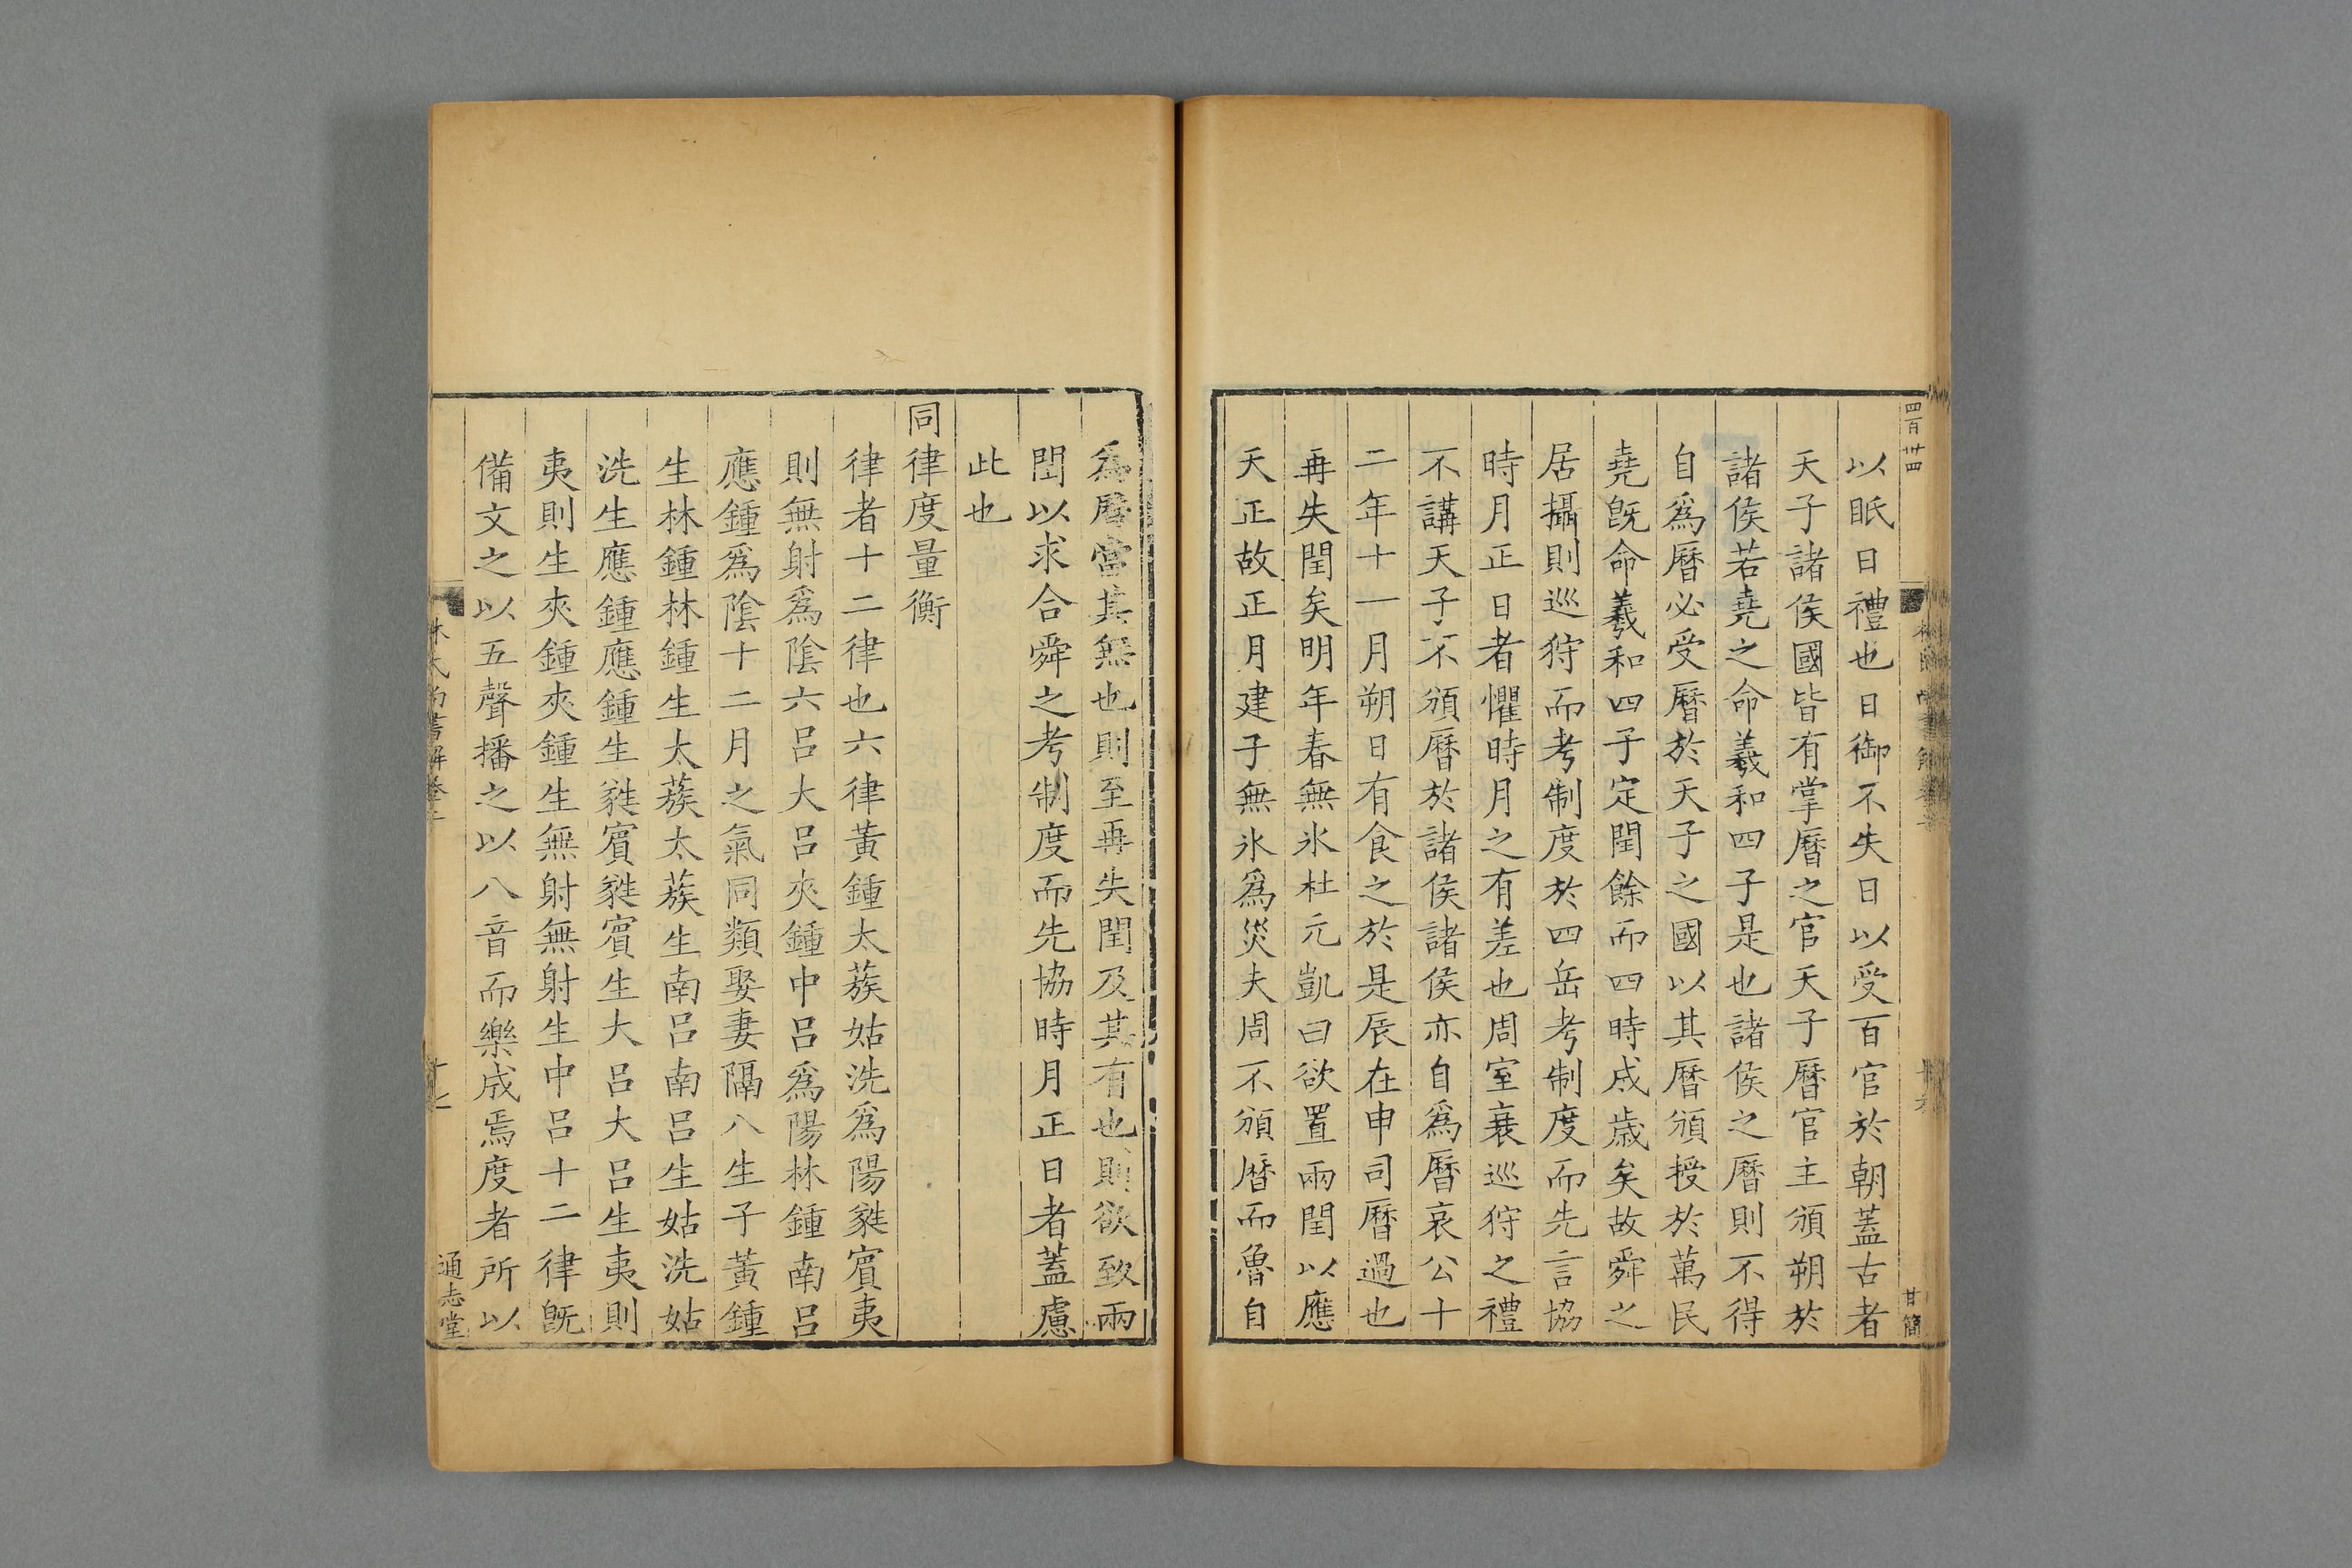 四百廿四
甘簡
以眡日禮也日御不失日以受百官於朝蓋古者
天子諸侯國皆有掌曆之官天子曆官主頒朔於
諸侯若堯之命羲和四子是也諸侯之曆則不得
自爲曆必受曆於天子之國以其曆頒授於萬民
堯旣命羲和四子定閏餘而四時成歲矣故舜之
居攝則巡狩而考制度於四岳考制度而先言協
時月正日者懼時月之有差也周室衰巡狩之禮
不講天子不頒曆於諸侯諸侯亦自爲曆哀公十
二年十一月朔日有食之於是辰在申司曆過也
再失閏矣明年春無氷杜元凱曰欲置兩閏以應
天正故正月建子無氷爲災夫周不頒曆而魯自
爲曆當其無也則至再失閏及其有也則欲致兩
閏以求合舜之考制度而先協時月正日者蓋慮
此也
同律度量衡
律者十二律也六律黃鍾太蔟姑洗爲陽蕤賓夷
則無射爲陰六呂大呂夾鍾中呂爲陽林鍾南呂
應鍾爲陰十二月之氣同類娶妻隔八生子黃鍾
生林鍾林鍾生太蔟太蔟生南呂南呂生姑洗姑
洗生應鍾應鍾生蕤賓蕤賓生大呂大呂生夷則
夷則生夾鍾夾鍾生無射無射生中呂十二律旣
備文之以五聲播之以八音而樂成焉度者所以
林氏尚書解卷二
十七
通志堂